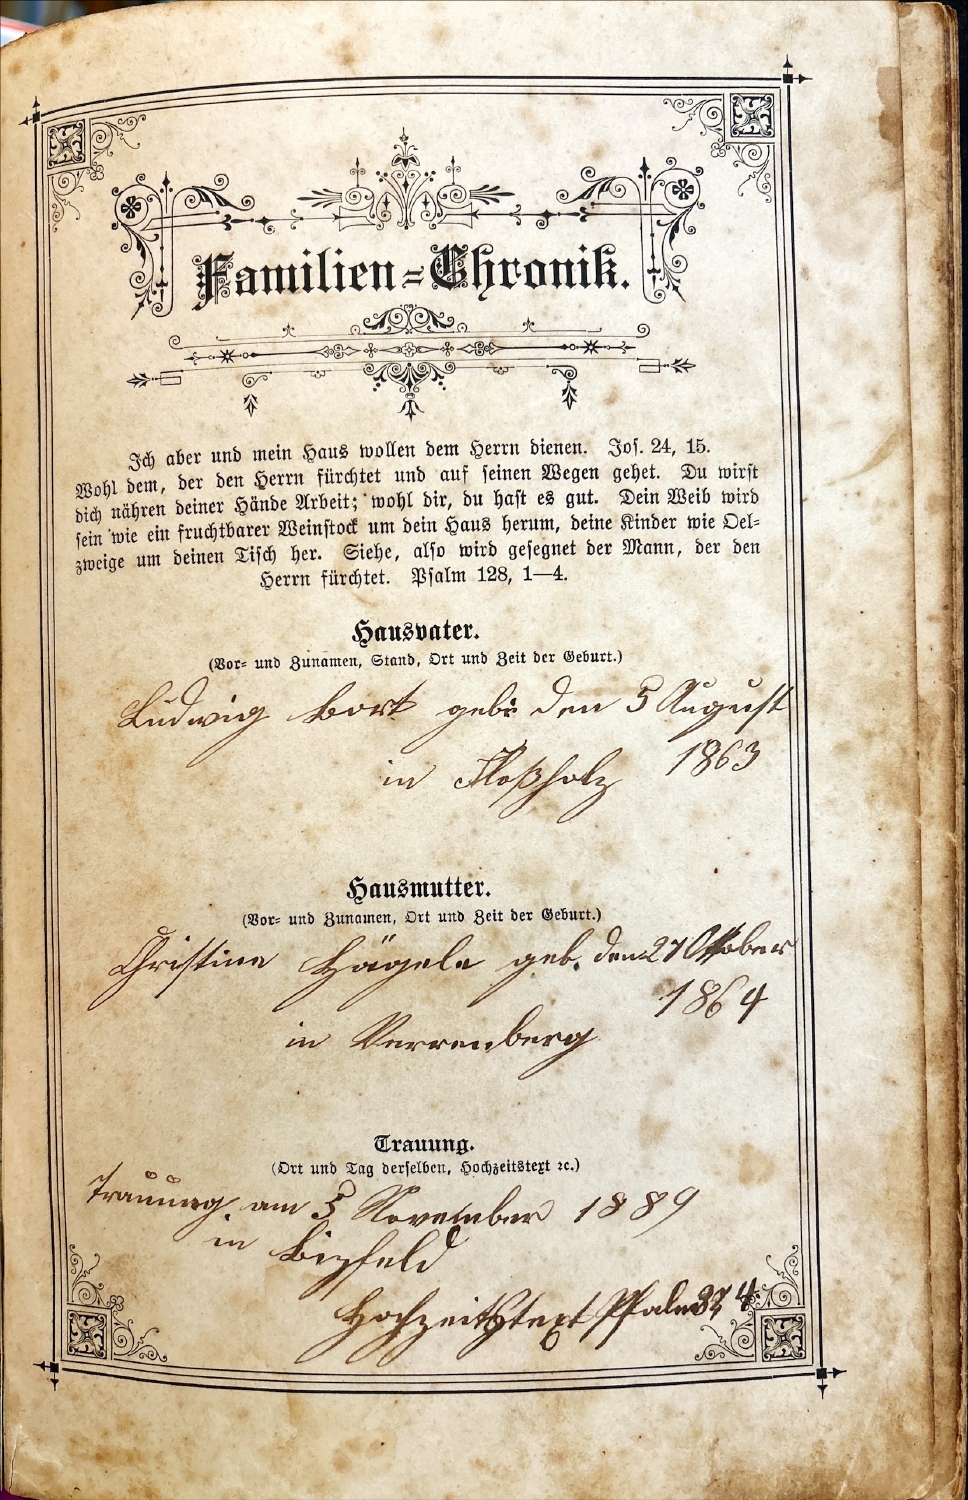 Familien=Chronik.
Ich aber und mein Haus wollen dem Herrn dienen. Jos. 24, 15.
Wohl dem, der den Herrn fürchtet und auf seinen Wegen gehet. Du wirst
dich nähren deiner Hände Arbeit; wohl dir, du hast es gut. Dein Weib wird
sein wie ein fruchtbarer Weinstock um dein Haus herum, deine Kinder wie Oel=
zweige um deinen Tisch her. Siehe, also wird gesegnet der Mann, der den
Herrn fürchtet. Psalm 128, 1—4.
Hausvater.
(Vor= und Zunamen, Stand, Ort und Zeit der Geburt.)
Ludwig Bort geb: den 5 August
1863
in Floßholz
Hausmutter.
(Vor= und Zunamen, Ort und Zeit der Geburt.)
Christine Hägele geb. den 27 Oktober
1864
in Verrenberg
Trauung.
(Ort und Tag derselben, Hochzeitstext ꝛc.)
Trauung am 5 November 1889
in Bizfeld
Hochzeitstext Psalm 37 4